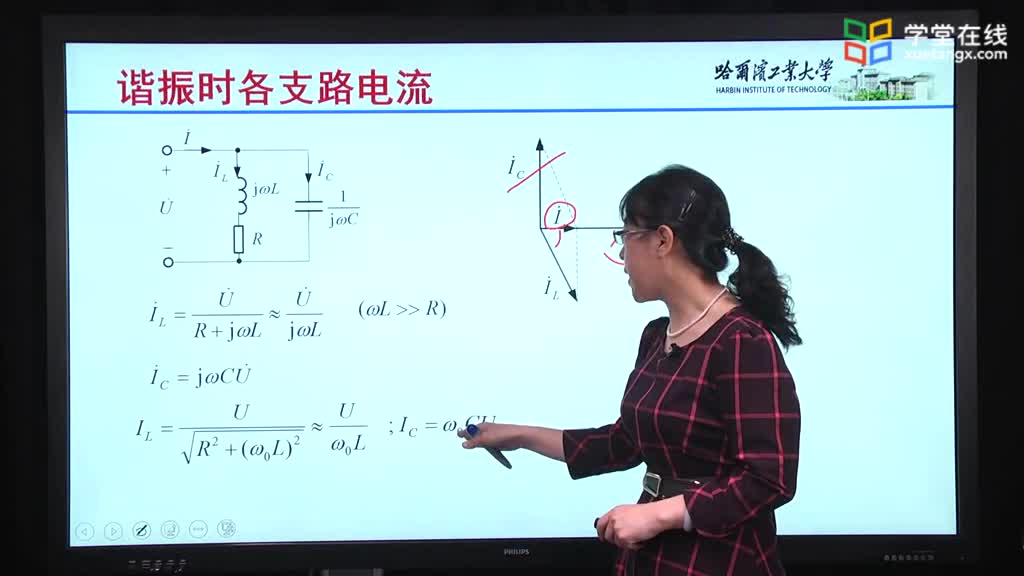 学堂在线
xuetangx.com
谐振时各支路电流
哈尔滨工业大学
HARBIN INSTITUTE OF TECHNOLOGY
İ
+
U̇
−
İ_L
jωL
R
İ_C
1/(jωC)
İ_C
İ
İ_L
İ_L = U̇/(R + jωL) ≈ U̇/(jωL) (ωL >> R)
İ_C = jωCU̇
I_L = U/√(R² + (ω₀L)²) ≈ U/(ω₀L) ; I_C = ω CU
PHILIPS